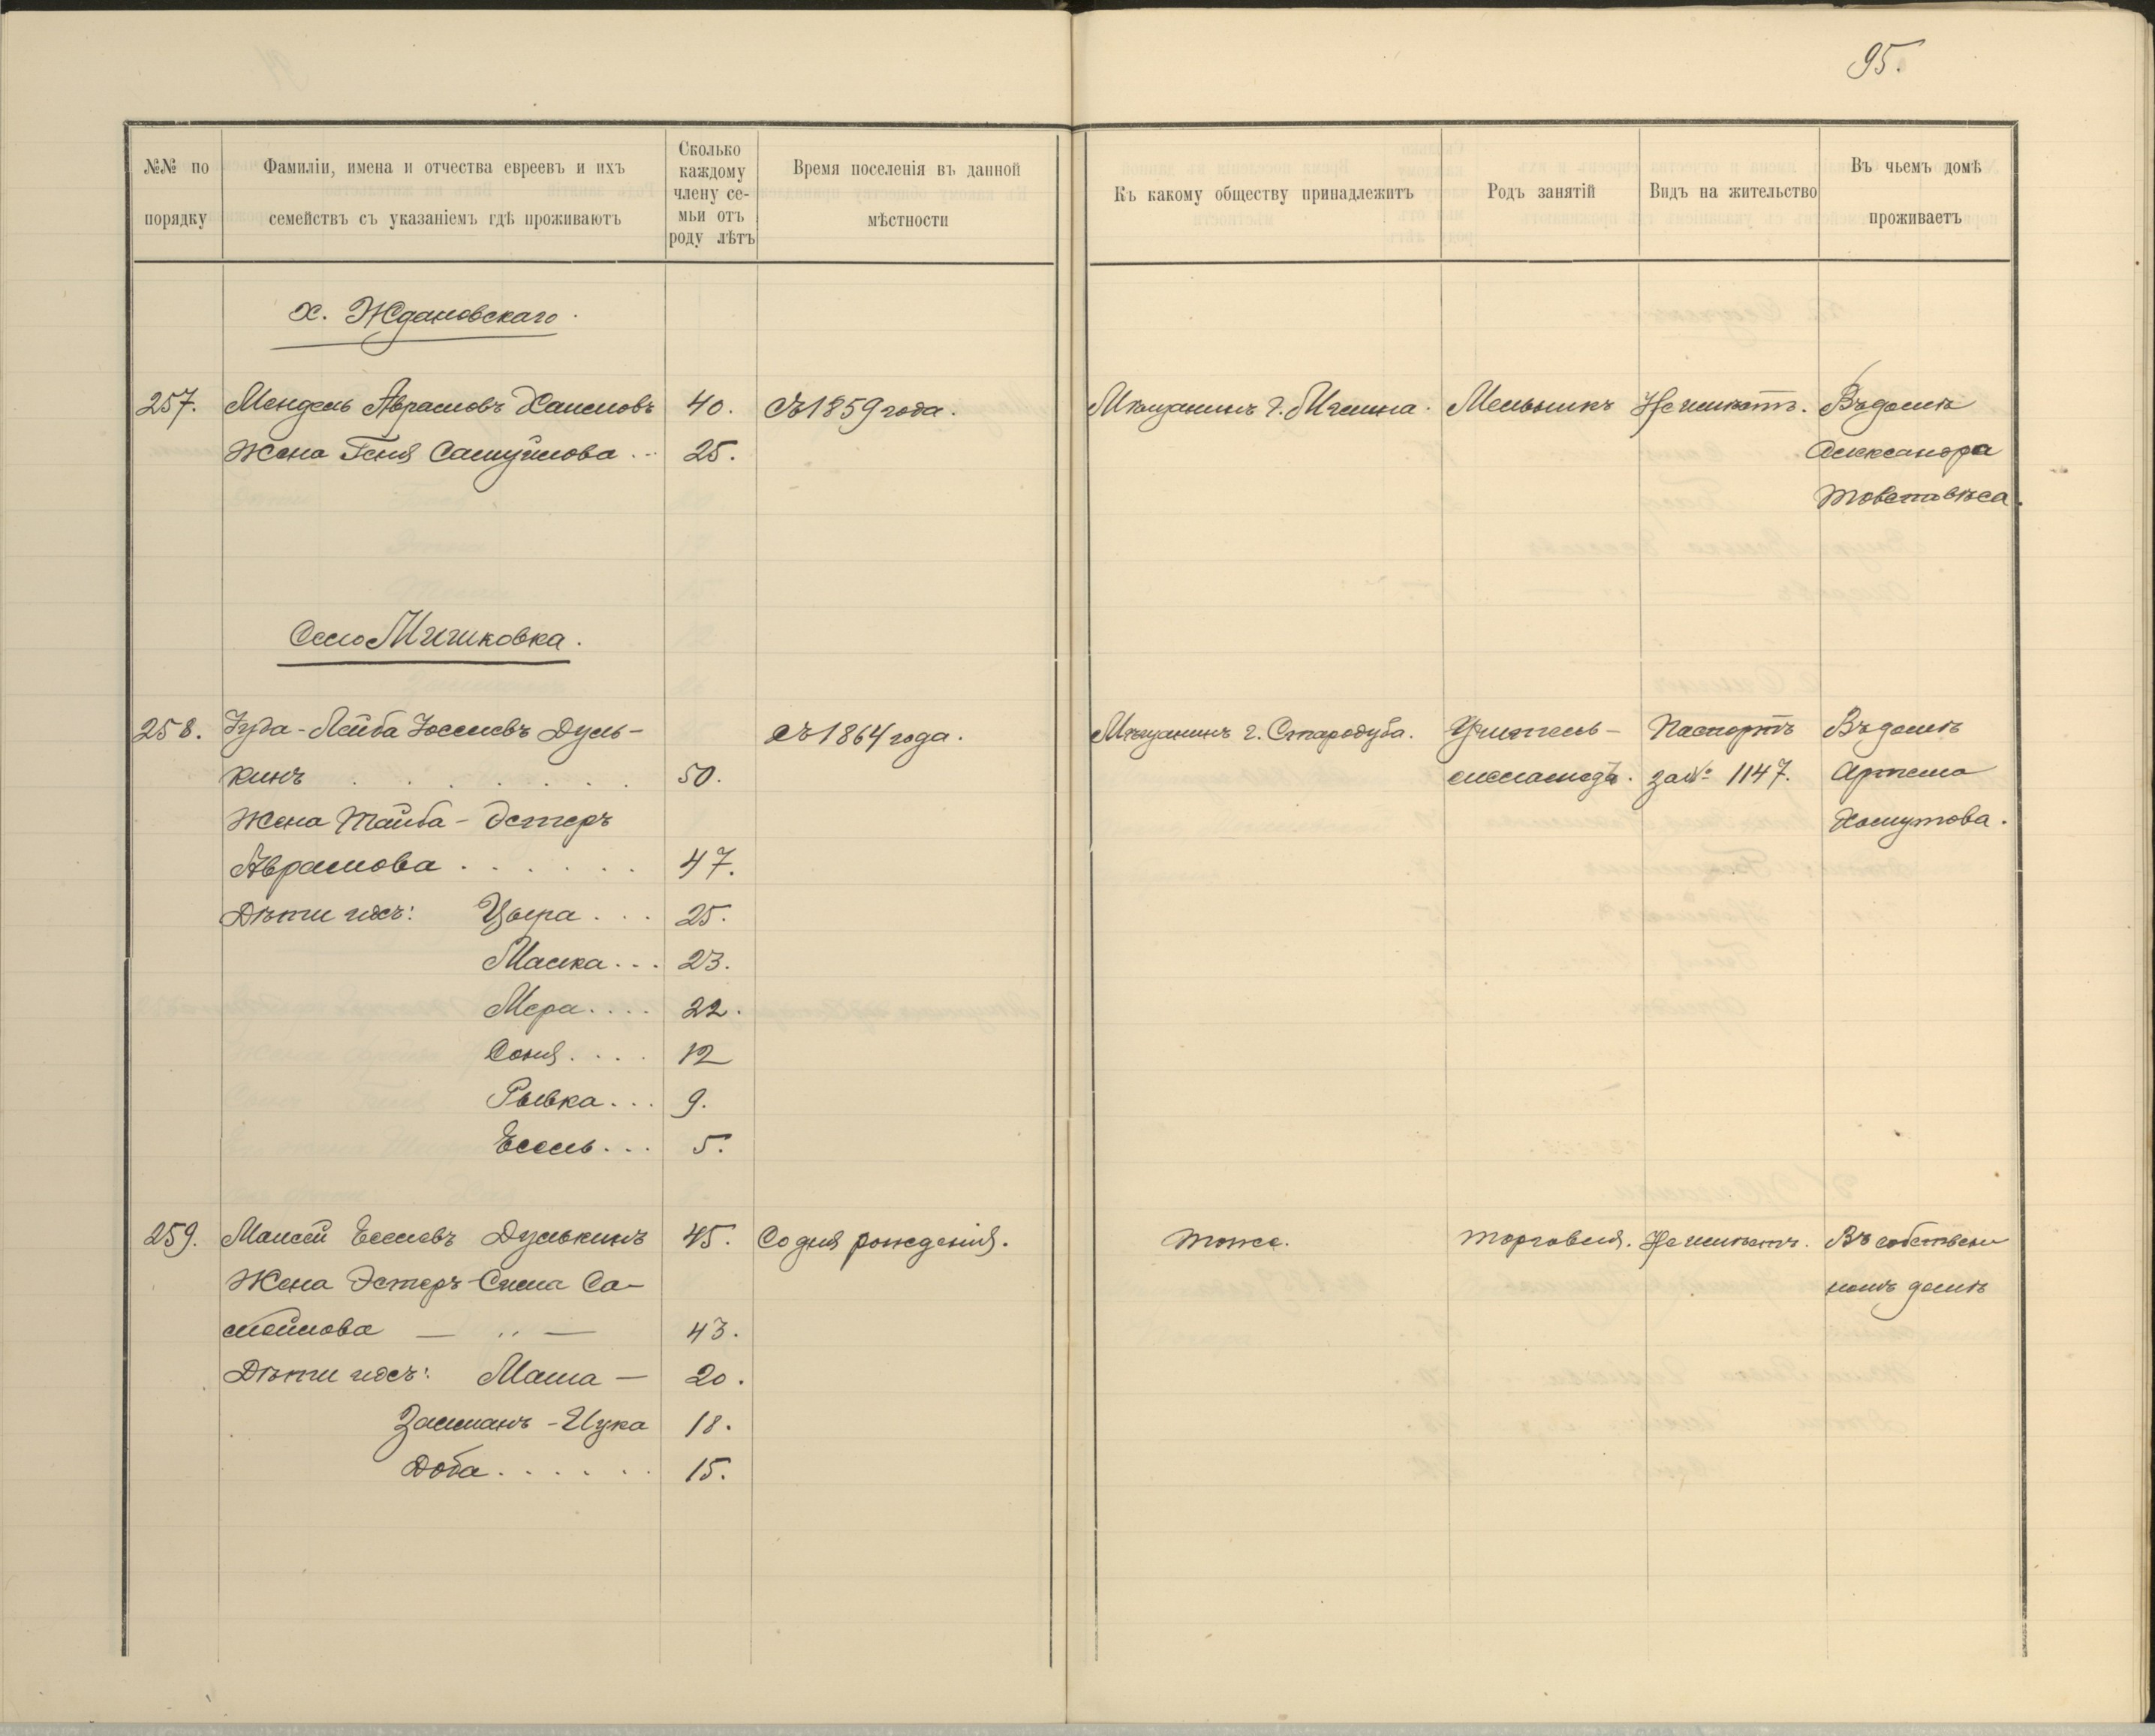 95.
№№ по
порядку
Фамиліи, имена и отчества евреевъ и ихъ
семействъ съ указаніемъ гдѣ проживаютъ
Сколько
каждому
члену се-
мьи отъ
роду лѣтъ
Время поселенія въ данной
мѣстности
Къ какому обществу принадлежитъ
Родъ занятій
Видъ на жительство
Въ чьемъ домѣ
проживаетъ
х. Ждановскаго.
257. Мендель Абрамовъ Хаимовъ 40. Съ 1859 года. Мѣщанинъ г. Мглина. Мельникъ Не имѣетъ. Въ домѣ
Жена Геня Самуйлова . . 25. Александра
Товставѣса.
Село Мишковка.
258. Іуда-Лейба Іоселевъ Дуль- Съ 1864 года. Мѣщанинъ г. Стародуба. Учитель- Паспортъ Въ домѣ
кинъ . . . . . . . 50. меламедъ. за № 1147. Артема
Жена Тайба-Эстеръ Хомутова.
Абрамова . . . . . . 47.
Дѣти ихъ: Цыра . . . 25.
Маска . . . 23.
Мера . . . . 22.
Соня . . . . 12
Рывка . . . 9.
Есель . . . 5.
259. Мансей Еселевъ Дулькинъ 45. Со дня рожденія. Тоже. Торговля. Не имѣетъ. Въ собствен
Жена Эстеръ-Сима Са- номъ домѣ
мойлова — „ — 43.
Дѣти ихъ: Маша — 20.
Залманъ-Ицка 18.
Доба . . . . . . 15.